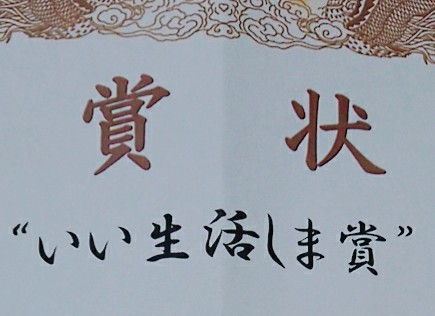 賞状
“いい生活しま賞”